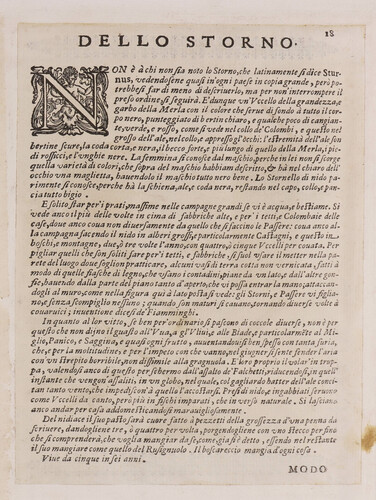 18
DELLO STORNO.
NON è à chi non sia noto lo Storno, che latinamente si dice Stur-
nus, vedendosene quasi in'ogni paese in copia grande, però po-
trebbesi far di meno di descriuerlo, ma per non'interrompere il
preso ordine, si seguirà. E' dunque vn'Vccello della grandezza, e
garbo della Merla, con il colore che serue di fondo à tutto il cor-
po nero, punteggiato di bertin chiaro, e qualche poco di cangian-
te, verde, e rosso, come si vede nel collo de' Colombi, e questo nel
grosso dell'ale, nel collo, e appresso gl'occhi: l'estremità dell'ale son
bertine scure, la coda corta, e nera, il becco forte, e più lungo di quello della Merla, i pie-
di rossicci, e l'vnghie nere. La femmina si conosce dal maschio, perche in lei non si scorge
quella varietà di colori, che, sopra del maschio habbiam descritto, & hà nel chiaro dell'
occhio vna maglietta, hauendolo il maschio tutto nero bere. Lo Stornello di nido pari-
mente si conosce, perche hà la schiena, ale, e coda nera, restando nel capo, collo, e pan-
cia tutto bigio.
E solito star per i prati, massime nelle campagne grandi se vi è acqua, e bestiame. Si
vede anco il più delle volte in cima di fabbriche alte, e per i tetti, e Colombaie delle
case, doue anco coua non diuersamente da quello che si faccino le Passere: coua anco al-
la campagna facendo il nido in alberi grossi, e particolarmente Castagni, e questo in
boschi, e montagne, due, ò tre volte l'anno, con quattro, ò cinque Vccelli per couata. Per
pigliar quelli che son soliti fare per i tetti, e fabbriche, si suol vsare il metter nella pa-
rete del luogo doue soglion pratticare, alcuni vasi di terra cotta non verniciata, fatti à
modo di quelle fiasche di legno, che vsano i contadini, piane da vn lato, e dall'altre gon-
fie, hauendo dalla parte del piano tanto d'aperto, che vi possa entrar la mano; attaccan-
dogli al muro, come nella figura quì à lato posta si vede: gli Storni, e Passere vi figlia-
no, e senza scompiglio nessuno; quando son maturi si cauano, tornando diuerse volte à
couaruici; inuentione dicesi de' Fiamminghi.
In quanto al lor vitto, se ben per'ordinario si pascono di coccole diuerse, non è per
questo che non dijno il guasto all'Vua, a gl'Vliui, alle Biade, e particolarmẽte al Mi-
glio, Panico, e Saggina, e quasi ogni frutto, auuentandouisi ben spesso con tanta furia,
che, per la moltitudine, e per l'impeto con che vanno, nel giugnere si sente fender l'aria
con vn strepito horribile, non dissimile alla gragnuola. E lor proprio il volar' in trop-
pa, valendosi anco di questo per schermo dall'assalto de' Falchetti, riducendosi, in quell'
instante che vengon'assaliti, in vn globo, nel quale, col gagliardo batter dell'ale conci-
tan tanto vento, che impediscon'à quello l'accostarsi. Presi di nido, e ingabbiati seruono
come Vccelli da canto, però più in fischi imparati, che in verso naturale. Si lasciano
anco andar per casa addomesticandosi marauigliosamente.
Del nidiace il suo pasto sarà cuore fatto à pezzetti della grossezza d'vna penna da
scriuere, dandogliene tre, ò quattro per volta, porgendogliene con vn stecco bene per fino
che si comprenderà, che voglia mangiar da se, come già si è detto, essendo nel restante
il suo mangiare come quello del Rusignuolo. Il boscareccio mangia d'ogni cosa.
Viue da cinque in sei anni.
MODO